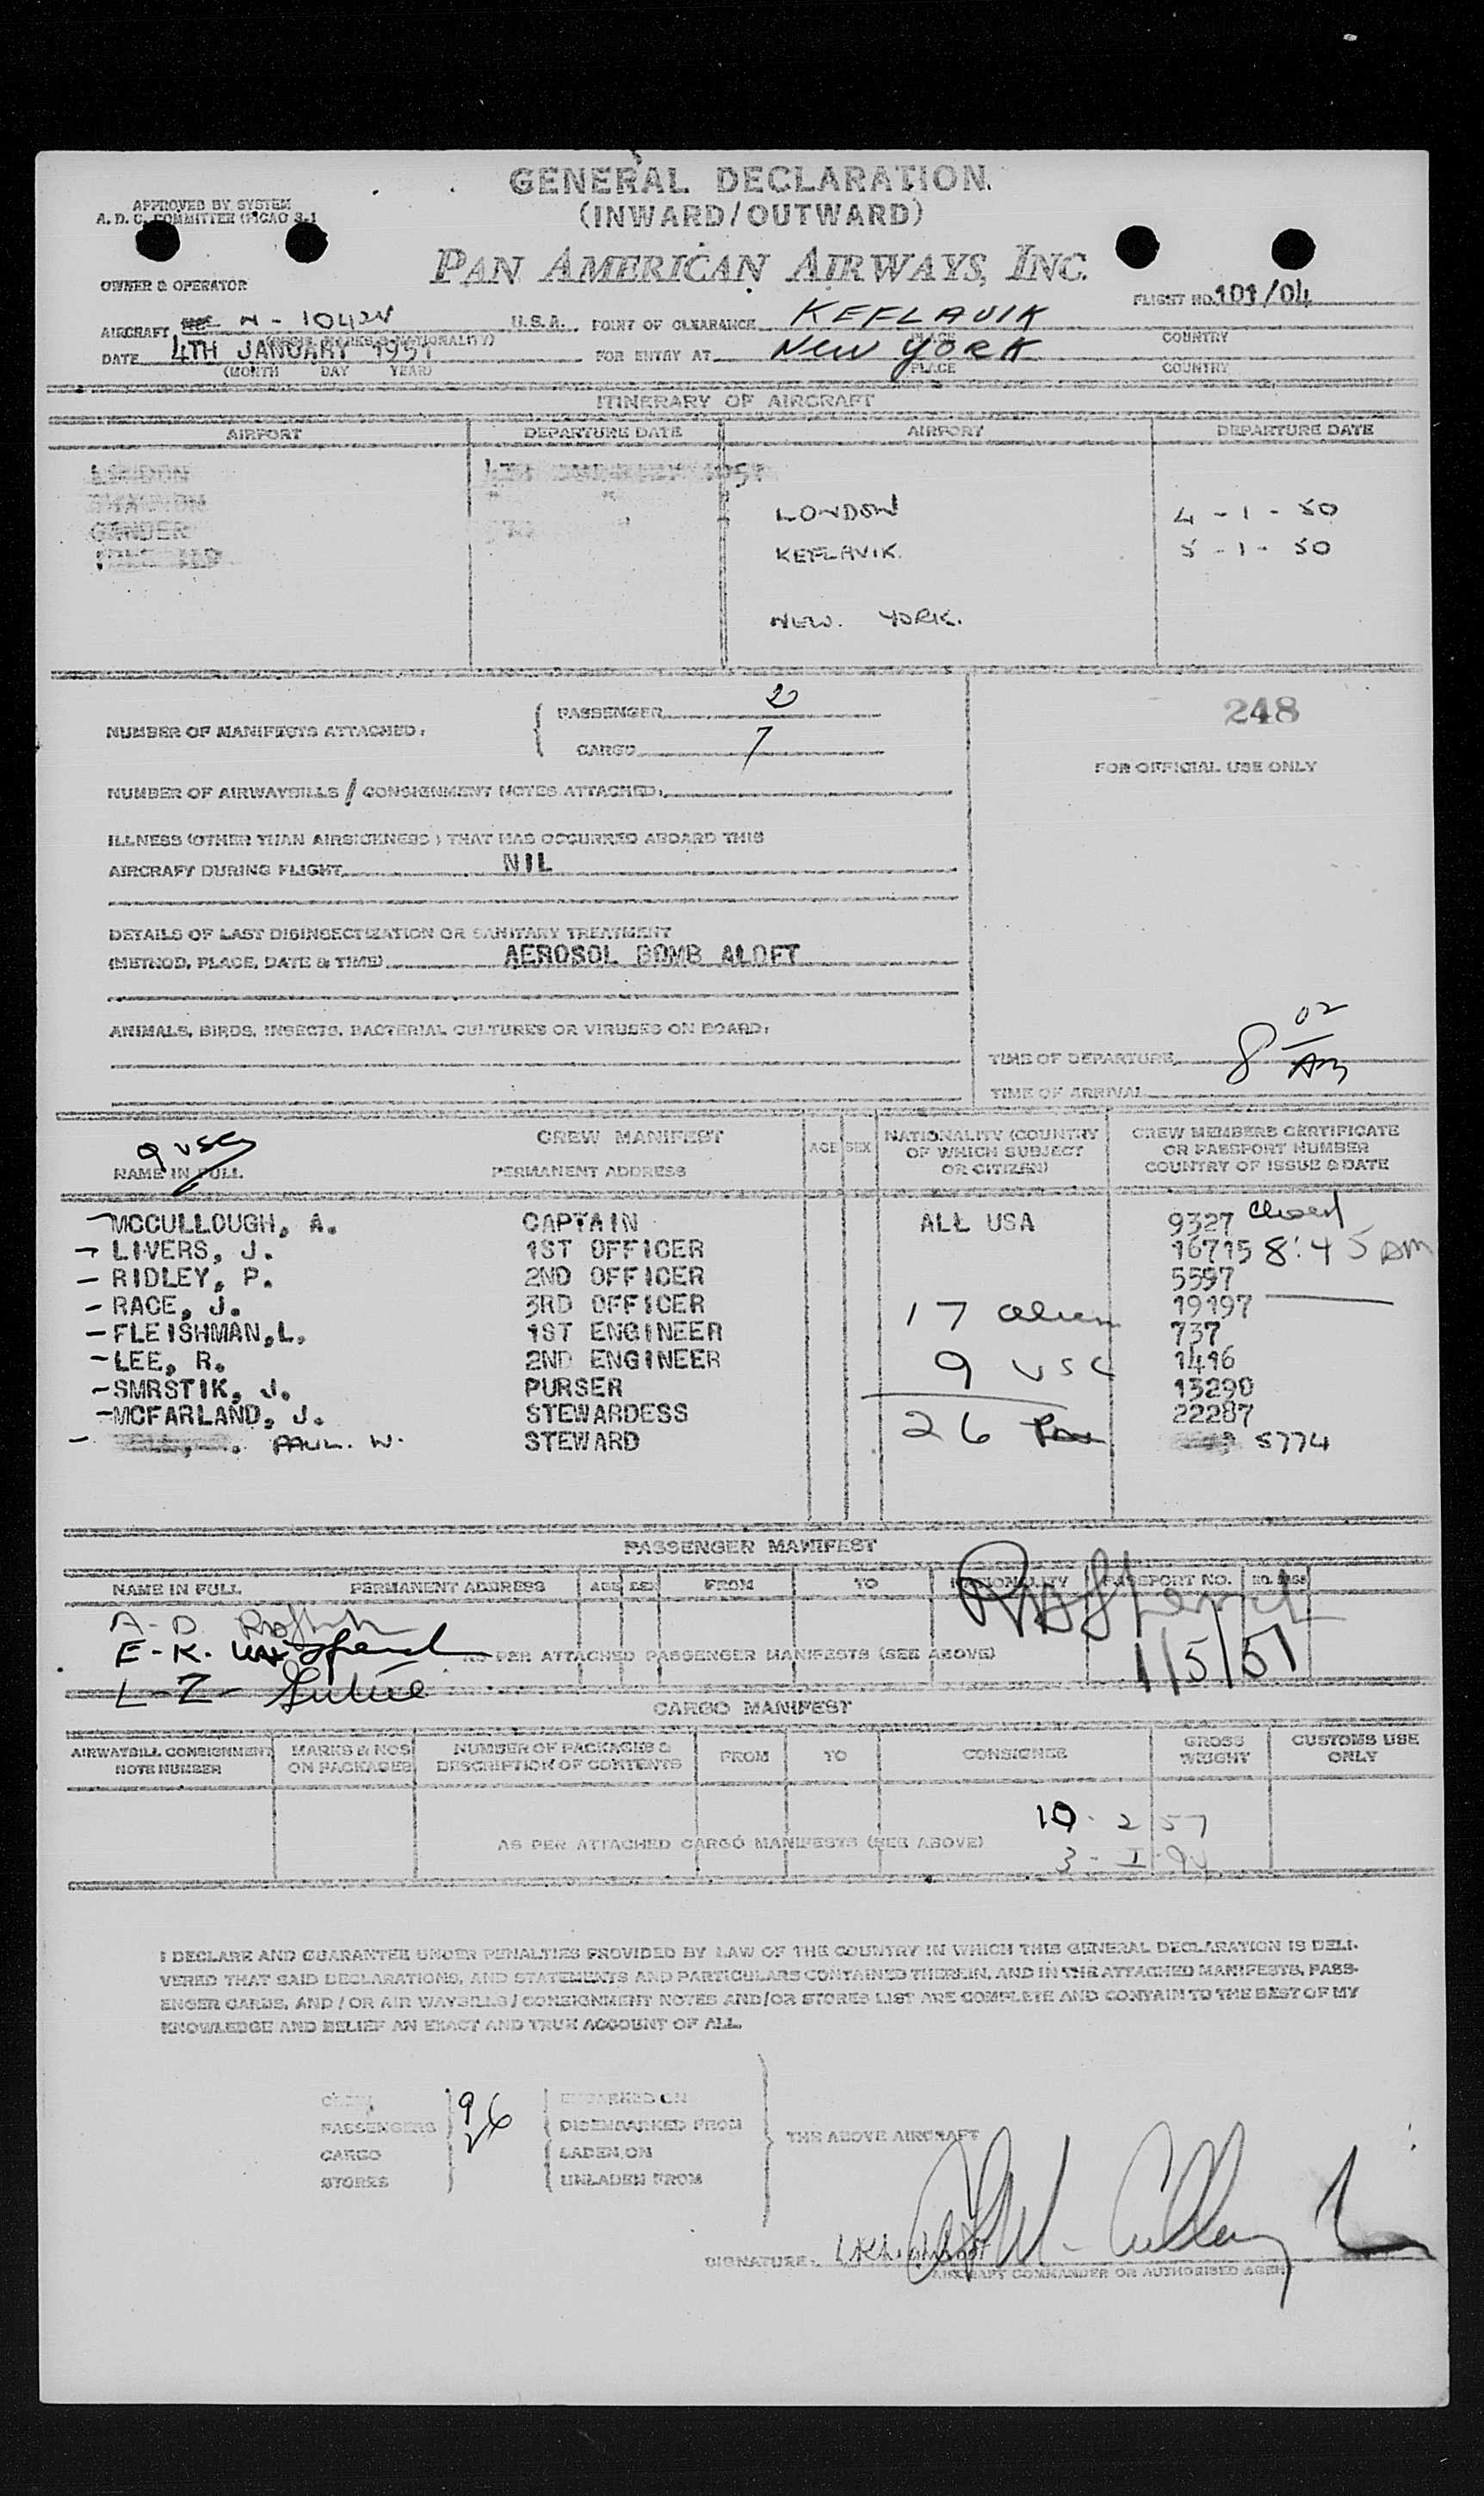 GENERAL DECLARATION.
(INWARD/OUTWARD)
APPROVED BY SYSTEM
A. D. C. COMMITTEE (PICAO 3-1
PAN AMERICAN AIRWAYS, INC.
OWNER & OPERATOR
FLIGHT NO. 101/04
AIRCRAFT N-1042V U.S.A. POINT OF CLEARANCE KEFLAVIK
PLACE COUNTRY
DATE 4TH JANUARY 1951 FOR ENTRY AT NEW YORK
(MONTH DAY YEAR) PLACE COUNTRY
ITINERARY OF AIRCRAFT
AIRPORT DEPARTURE DATE AIRPORT DEPARTURE DATE
LONDON
GANDER
LONDON 4-1-50
KEFLAVIK. 5-1-50
NEW. YORK.
248
NUMBER OF MANIFESTS ATTACHED: PASSENGER 2
CARGO 7
FOR OFFICIAL USE ONLY
NUMBER OF AIRWAYBILLS / CONSIGNMENT NOTES ATTACHED:
ILLNESS (OTHER THAN AIRSICKNESS) THAT HAS OCCURRED ABOARD THIS
AIRCRAFT DURING FLIGHT NIL
DETAILS OF LAST DISINSECTIZATION OR SANITARY TREATMENT
(METHOD, PLACE, DATE & TIME) AEROSOL BOMB ALOFT
ANIMALS, BIRDS, INSECTS, BACTERIAL CULTURES OR VIRUSES ON BOARD:
TIME OF DEPARTURE 8 02 AM
TIME OF ARRIVAL
9 USC
CREW MANIFEST
NAME IN FULL PERMANENT ADDRESS AGE SEX NATIONALITY (COUNTRY OF WHICH SUBJECT OR CITIZEN) CREW MEMBERS CERTIFICATE OR PASSPORT NUMBER COUNTRY OF ISSUE & DATE
MCCULLOUGH, A. CAPTAIN ALL USA 9327
LIVERS, J. 1ST OFFICER 16715 8:45 AM
RIDLEY, P. 2ND OFFICER 5597
RACE, J. 3RD OFFICER 19197
17 alien
FLEISHMAN, L. 1ST ENGINEER 737
LEE, R. 2ND ENGINEER 9 USC 1416
SMRSTIK, J. PURSER 13290
MCFARLAND, J. STEWARDESS 26 22287
PAUL. W. STEWARD 5774
PASSENGER MANIFEST
NAME IN FULL PERMANENT ADDRESS AGE SEX FROM TO NATIONALITY PASSPORT NO.
A-D
E-K.
AS PER ATTACHED PASSENGER MANIFESTS (SEE ABOVE)
1/5/51
L-Z-
CARGO MANIFEST
AIRWAYBILL CONSIGNMENT NOTE NUMBER MARKS & NOS ON PACKAGES NUMBER OF PACKAGES & DESCRIPTION OF CONTENTS FROM TO CONSIGNEE GROSS WEIGHT CUSTOMS USE ONLY
AS PER ATTACHED CARGO MANIFESTS (SEE ABOVE)
I DECLARE AND GUARANTEE UNDER PENALTIES PROVIDED BY LAW OF THE COUNTRY IN WHICH THIS GENERAL DECLARATION IS DELI-
VERED THAT SAID DECLARATIONS, AND STATEMENTS AND PARTICULARS CONTAINED THEREIN, AND IN THE ATTACHED MANIFESTS, PASS-
ENGER CARDS, AND / OR AIR WAYBILLS / CONSIGNMENT NOTES AND/OR STORES LIST ARE COMPLETE AND CONTAIN TO THE BEST OF MY
KNOWLEDGE AND BELIEF AN EXACT AND TRUE ACCOUNT OF ALL.
CREW 9 EMBARKED ON
PASSENGERS 26 DISEMBARKED FROM
THE ABOVE AIRCRAFT
CARGO LADEN ON
STORES UNLADEN FROM
SIGNATURE:
AIRCRAFT COMMANDER OR AUTHORISED AGENT